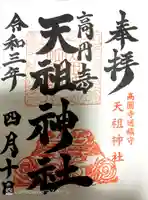 奉拝
高円寺
天祖神社
高圓寺地鎮守
天祖神社
令和三年
四月十